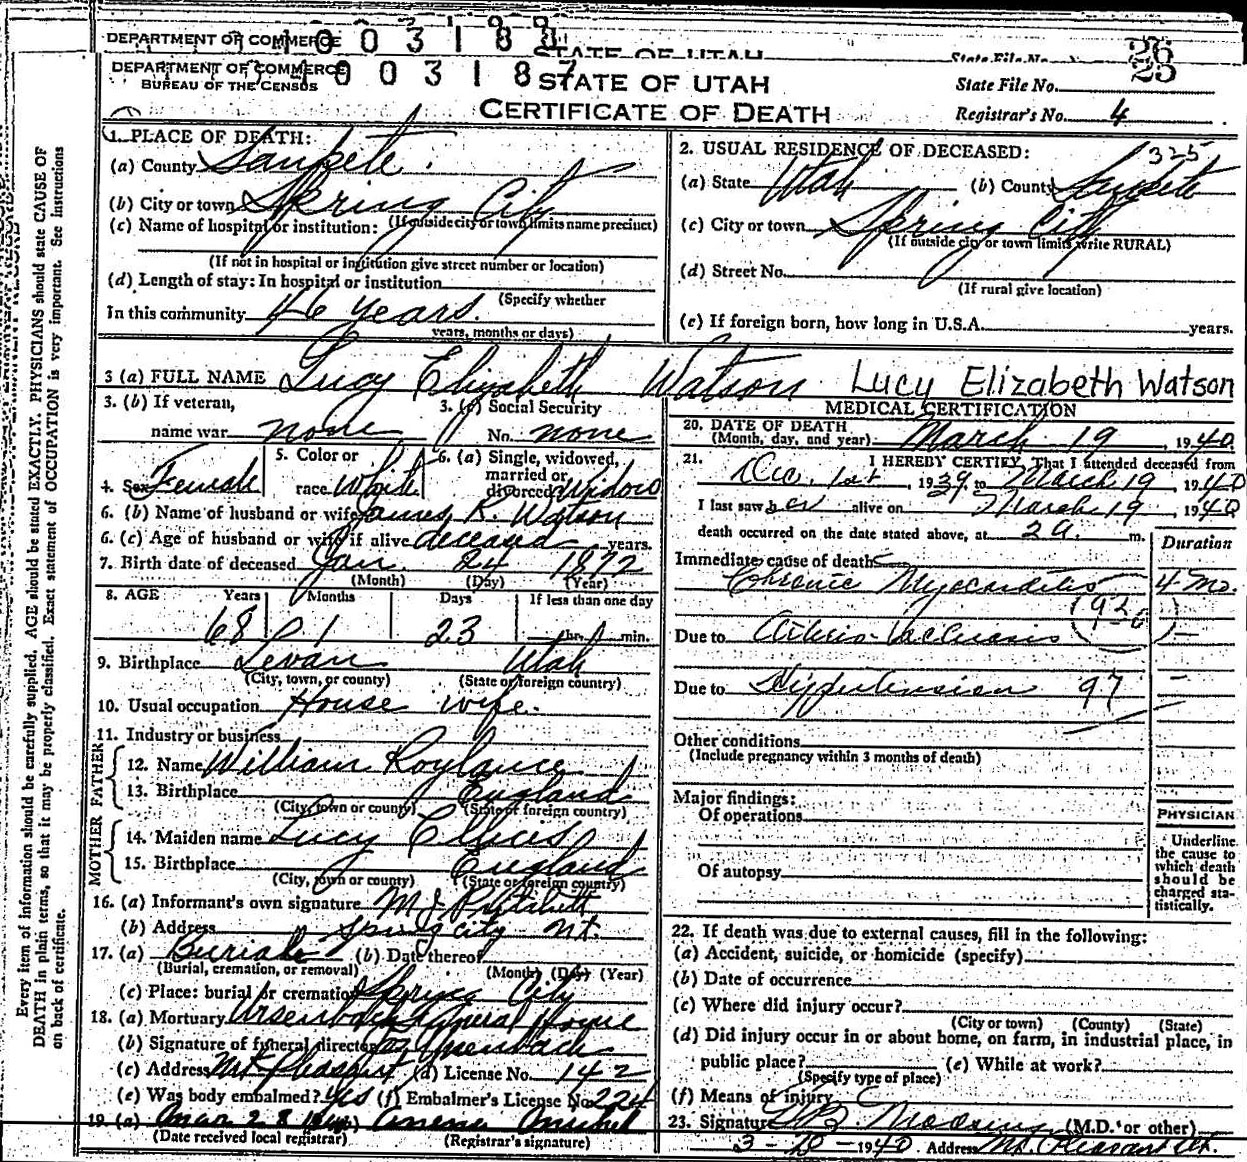 DEPARTMENT OF COMMERCE 4 0 0 3 1 8 8 STATE OF UTAH State File No. 26
DEPARTMENT OF COMMERCE 4 0 0 3 1 8 7 STATE OF UTAH State File No. 25
BUREAU OF THE CENSUS
CERTIFICATE OF DEATH Registrar's No. 4
Every item of information should be carefully supplied. AGE should be stated EXACTLY. PHYSICIANS should state CAUSE OF
DEATH in plain terms, so that it may be properly classified. Exact statement of OCCUPATION is very important. See Instructions
on back of certificate.
1. PLACE OF DEATH:
(a) County Sanpete
(b) City or town Spring City
(If outside city or town limits name precinct)
(c) Name of hospital or institution:
(If not in hospital or institution give street number or location)
(d) Length of stay: In hospital or institution
(Specify whether
In this community 46 years
years, months or days)
2. USUAL RESIDENCE OF DECEASED: 325
(a) State Utah (b) County Sanpete
(c) City or town Spring City
(If outside city or town limits write RURAL)
(d) Street No.
(If rural give location)
(e) If foreign born, how long in U.S.A. years.
3 (a) FULL NAME Lucy Elizabeth Watson Lucy Elizabeth Watson
3. (b) If veteran, name war none
3. (c) Social Security No. none
4. Sex Female
5. Color or race White
6. (a) Single, widowed, married or divorced Widow
6. (b) Name of husband or wife James R. Watson
6. (c) Age of husband or wife if alive deceased years.
7. Birth date of deceased Jan 24 1872
(Month) (Day) (Year)
8. AGE Years Months Days If less than one day
68 1 23 hr. min.
9. Birthplace Levan Utah
(City, town, or county) (State or foreign country)
10. Usual occupation House wife.
11. Industry or business
FATHER
12. Name William Roylance
13. Birthplace England
(City, town or county) (State or foreign country)
MOTHER
14. Maiden name Lucy
15. Birthplace England
(City, town or county) (State or foreign country)
16. (a) Informant's own signature M J Pritchett
(b) Address Spring city Ut.
17. (a) Burial (b) Date thereof
(Burial, cremation, or removal) (Month) (Day) (Year)
(c) Place: burial or cremation Spring City
18. (a) Mortuary Ursenbach Funeral Home
(b) Signature of funeral director Ursenbach
(c) Address Mt Pleasant (d) License No. 142
(e) Was body embalmed? Yes (f) Embalmer's License No. 224
19. (a) Mar 28 1940
(Date received local registrar) (Registrar's signature)
MEDICAL CERTIFICATION
20. DATE OF DEATH
(Month, day, and year) March 19, 1940
21. I HEREBY CERTIFY, That I attended deceased from
Dec. 1st, 1939 to March 19, 1940
I last saw her alive on March 19 1940
death occurred on the date stated above, at 2 a. m.
Duration
Immediate cause of death
Chronic Myocarditis 4 mo.
Due to Arterio-sclerosis
Due to Hypertension 97
Other conditions
(Include pregnancy within 3 months of death)
Major findings:
Of operations
Of autopsy
PHYSICIAN
Underline
the cause to
which death
should be
charged sta-
tistically.
22. If death was due to external causes, fill in the following:
(a) Accident, suicide, or homicide (specify)
(b) Date of occurrence
(c) Where did injury occur?
(City or town) (County) (State)
(d) Did injury occur in or about home, on farm, in industrial place, in
public place? (e) While at work?
(Specify type of place)
(f) Means of injury
23. Signature (M.D. or other)
1940 Address Mt. Pleasant Ut.